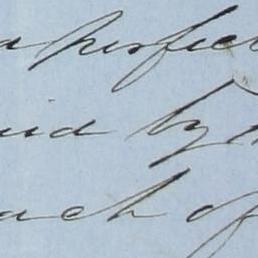 a perfect
aid by th
each of